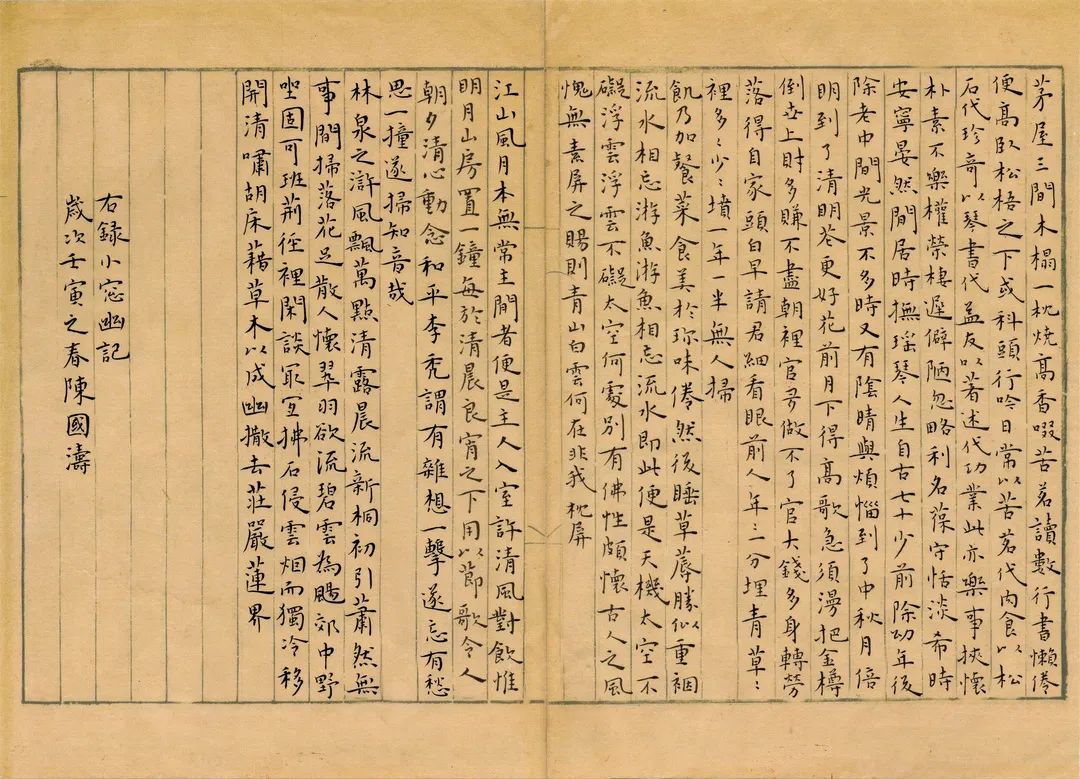 茅屋三間木榻一枕燒高香啜苦茗讀數行書懶倦
便高臥松梧之下或科頭行吟日常以苦茗代肉食以松
石代珍奇以琴書代益友以著述代功業此亦樂事挾懷
朴素不樂權榮棲遲僻陋忽略利名葆守恬淡希時
安寧晏然閒居時撫瑶琴人生自古七十少前除幼年後
除老中間光景不多時又有陰晴與煩惱到了中秋月倍
明到了清明花更好花前月下得高歌急須漫把金樽
倒世上財多賺不盡朝裡官多做不了官大錢多身轉勞
落得自家頭白早請君細看眼前人年〻一分埋青草〻
裡多〻少〻墳一年一半無人掃
飢乃加餐菜食美於珍味倦然後睡草蓐勝似重裀
流水相忘游魚游魚相忘流水即此便是天機太空不
礙浮雲浮雲不礙太空何處別有佛性頗懷古人之風
愧無素屏之賜則青山白雲何在非我枕屏
江山風月本無常主閒者便是主人入室許清風對飲惟
明月山房置一鐘每於清晨良宵之下用以節歌令人
朝夕清心動念和平李禿謂有雜想一擊遂忘有愁
思一撞遂掃知音哉
林泉之滸風飄萬點清露晨流新桐初引蕭然無
事閒掃落花足散人懷翠羽欲流碧雲為颺郊中野
坐固可班荊徑裡閑談最宜拂石侵雲烟而獨冷移
開清嘯胡床藉草木以成幽撤去莊嚴蓮界
右錄小窓幽記
歲次壬寅之春陳國濤